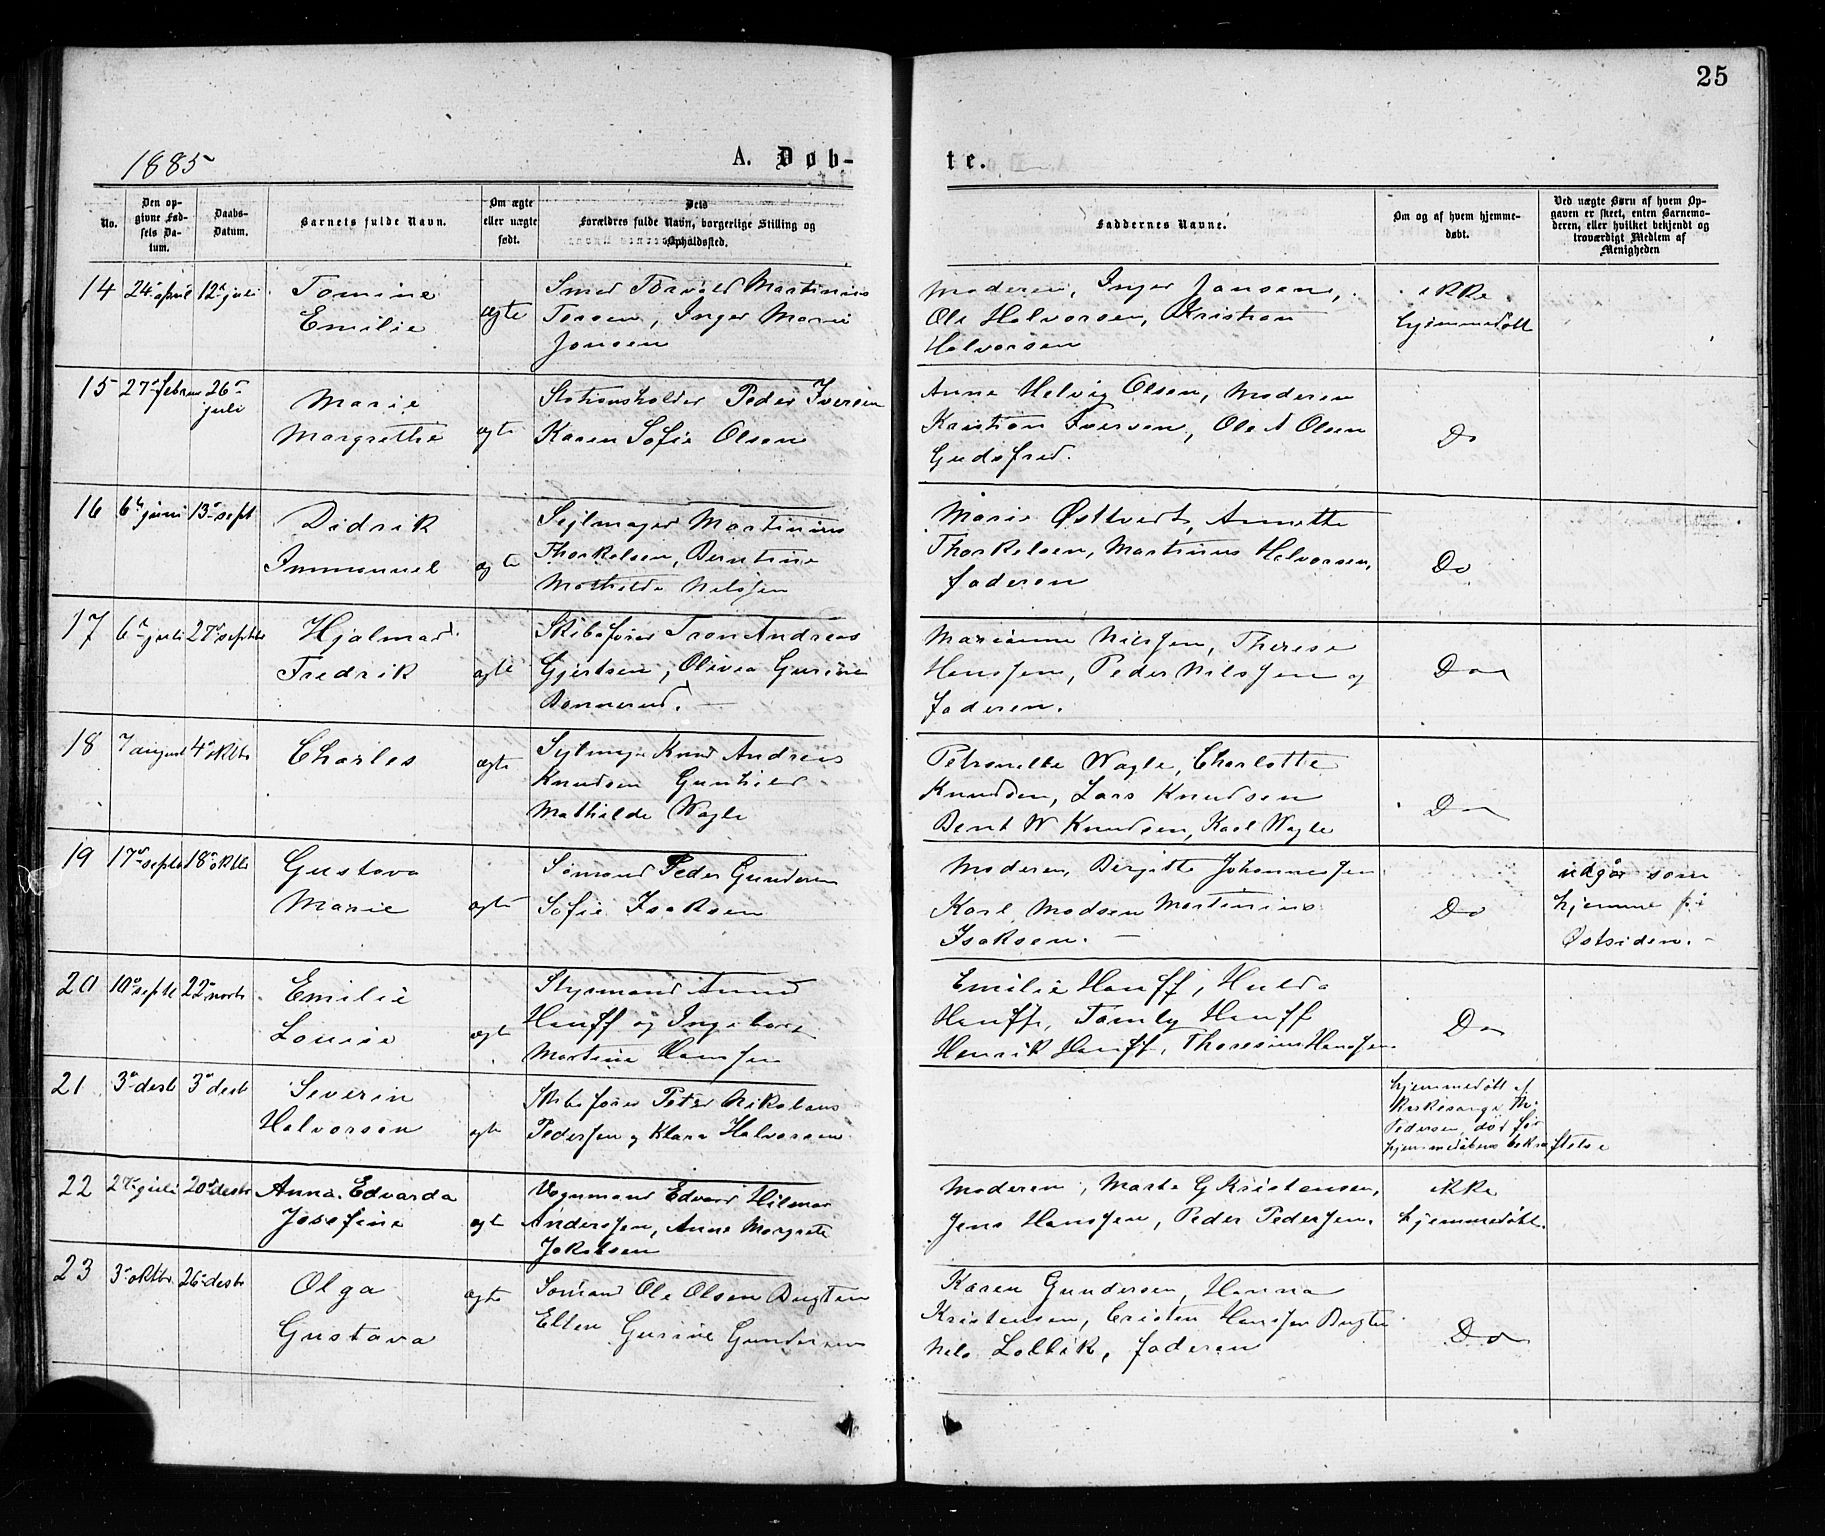 25
1885
A. Døb-
te.
No.
Den op-
givne Fød-
sels Da-
tum.
Daabs-
Datum.
Barnets fulde Navn.
Om ægte
eller uægte
født.
Dets
Forældres fulde Navn, borgerlige Stilling og
Opholdssted.
Faddernes Navne.
Om og af hvem hjemme-
døbt.
Ved uægte Børn af hvem Op-
gaven er skeet, enten Barnemo-
deren, eller hvilket bekjendt og
troværdigt Medlem af
Menigheden
14 24 april 12 juli
Tomine
Emilie
ægte
Smed Torvald Martinius
Inger Marie
Jonsen
Moderen, Inger Jansen,
Ole Halvorsen, Kristian
Halvorsen
ikke
hjemmedøbt
15 27 febru 26
juli
Marie
Margrethe
ægte
Stationsholder Peder Iversen
Karen Sofie Olsen
Anne Helvig Olsen, Moderen
Kristian Iversen, Ole A Olsen
Gudsfred.
Do
16 6 juni 13 sept
Didrik
Immanuel
ægte
Sejlmager Martinius
Thorkelsen, Berntine
Mathilde Nilssen
Marie Østtvert, Annette
Thorkelsen, Martinus Halvorsen,
faderen
Do
17 6 juli 27 septbr
Hjalmar
Fredrik
ægte
Skibsfører Tron Andreas
Gjertsen, Olivia Gurine
Bonnerud.
Marianne Nilssen, Therese
Hanssen, Peder Nilssen og
faderen.
Do
18 7 august 4 oktbr
Charles
ægte
Sejlmager Knud Andreas
Knudsen Gunhild
Mathilde Wagle
Petronelle Wagle, Charlotte
Knudsen, Lars Knudsen
Bent W Knudsen, Karl Wagle
Do
19 17 septb 18 oktbr
Gustava
Marie
ægte
Sømand Peder Gundersen
Sofie Isaksen
Moderen, Birgitte Johannessen
Karl Madsen Martinius
Isaksen.
Do
udgår som
hjemme på
Østsiden.
20 10 septb 22 novb
Emilie
Louise
ægte
Styrmand
Hanff og Ingeborg
Martine Hanssen
Emilie Hanff, Hulda
Hanff, Hanff
Henrik Hanff, Hanssen
Do
21 3 desb 3 desb
Severin
Halvorsen
ægte
Skibsfører Peter Nikolaus
Pedersen og Klara Halvorsen
hjemmedøbt af
Kirkesanger
Pedersen, død før
hjemmedåbens bekræftelse
22 27 juli 20 desbr
Anna Edvarda
Josefine
ægte
Vognmand Edvard Hilmar
Anderssen, Anne Margrete
Jakobsen
Moderen, Marte G Kristensen,
Jens Hanssen, Peder Pederssen.
ikke
hjemmedøbt.
23 3 oktbr. 26 desbr
Olga
Gustava
ægte
Sømand Ole Olsen Bugten
Ellen Gurine Gundersen
Karen Gundersen, Hanna
Kristensen, Cristen Hanssen Bugten
Nils Lolbik, faderen
Do